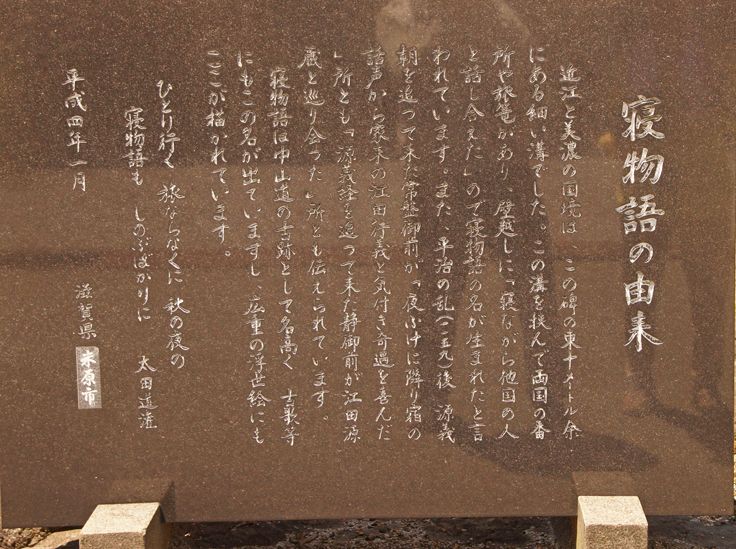 寝物語の由来
近江と美濃の国境は、この碑の東十メートル余
にある細い溝でした。この溝を挟んで両国の番
所や旅篭があり、壁越しに「寝ながら他国の人
と話し合えた」ので寝物語の名が生まれたと言
われています。また、平治の乱(一一五九)後、源義
朝を追って来た常盤御前が「夜ふけに隣り宿の
話声から家来の江田行義と気付き奇遇を喜んだ
」所とも「源義経を追って来た静御前が江田源
蔵と巡り会った」所とも伝えられています。
寝物語は中山道の古跡として名高く、古歌等
にもこの名が出ていますし、広重の浮世絵にも
ここが描かれています。
ひとり行く 旅ならなくに 秋の夜の
寝物語も しのぶばかりに 太田道灌
平成四年一月
滋賀県 米原市